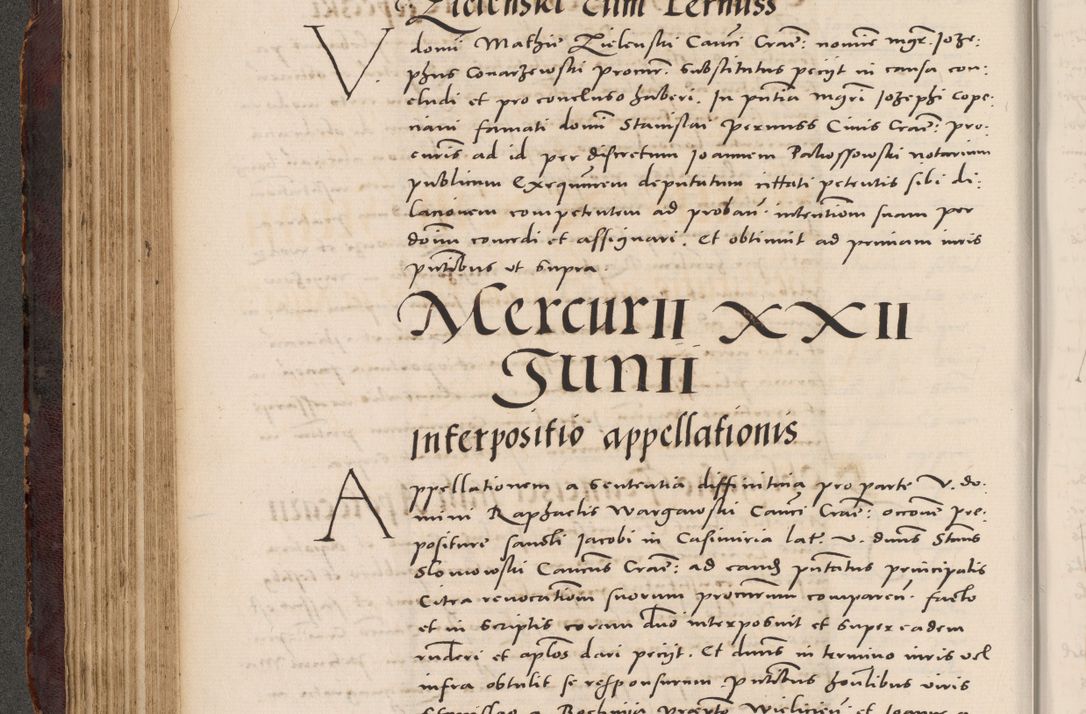 Zielenski cum Pernuss
V. domini Mathie Zielenski Canci Crac: nomine mgr. Joze:
phus Conarzewski Procur. Substitutus petijt in causa con:
cludi et pro concluso haberi. In pntia mgri Jozephi Cope:
ciani famati domi Stanislai Pernuss Civis Crac: pro:
curis ad id per discretum Joannem Pakossowski notarium
publicum Exequutum deputatum cittati petentis sibi di:
lacionem competentem ad proban. intentiom suam per
dominum concedi et assignari. Et obtinuit ad primam iuris
pntibus ut supra.
Mercurii XXII
Junii
Interpositio appellationis
Appellationem a sententia diffinitiva pro parte V. do:
mini Raphaelis Wargawski Canci Crac: occone pre:
positure sancti Jacobi in Casimiria lat. v. duns Stanus
Slomowski Canncus Crac: ad eand pntatus principalis
Citra revocatiom suorum procurum comparen. facto
et in scriptis coram dno interposuit et super eadem
rnderi et aplos dari petijt. Et duns in termino iuris vel
infra obtulit se responsurum. pntibus honlibus viris
Stanislao a Bochnia Wielicien et Joanne a